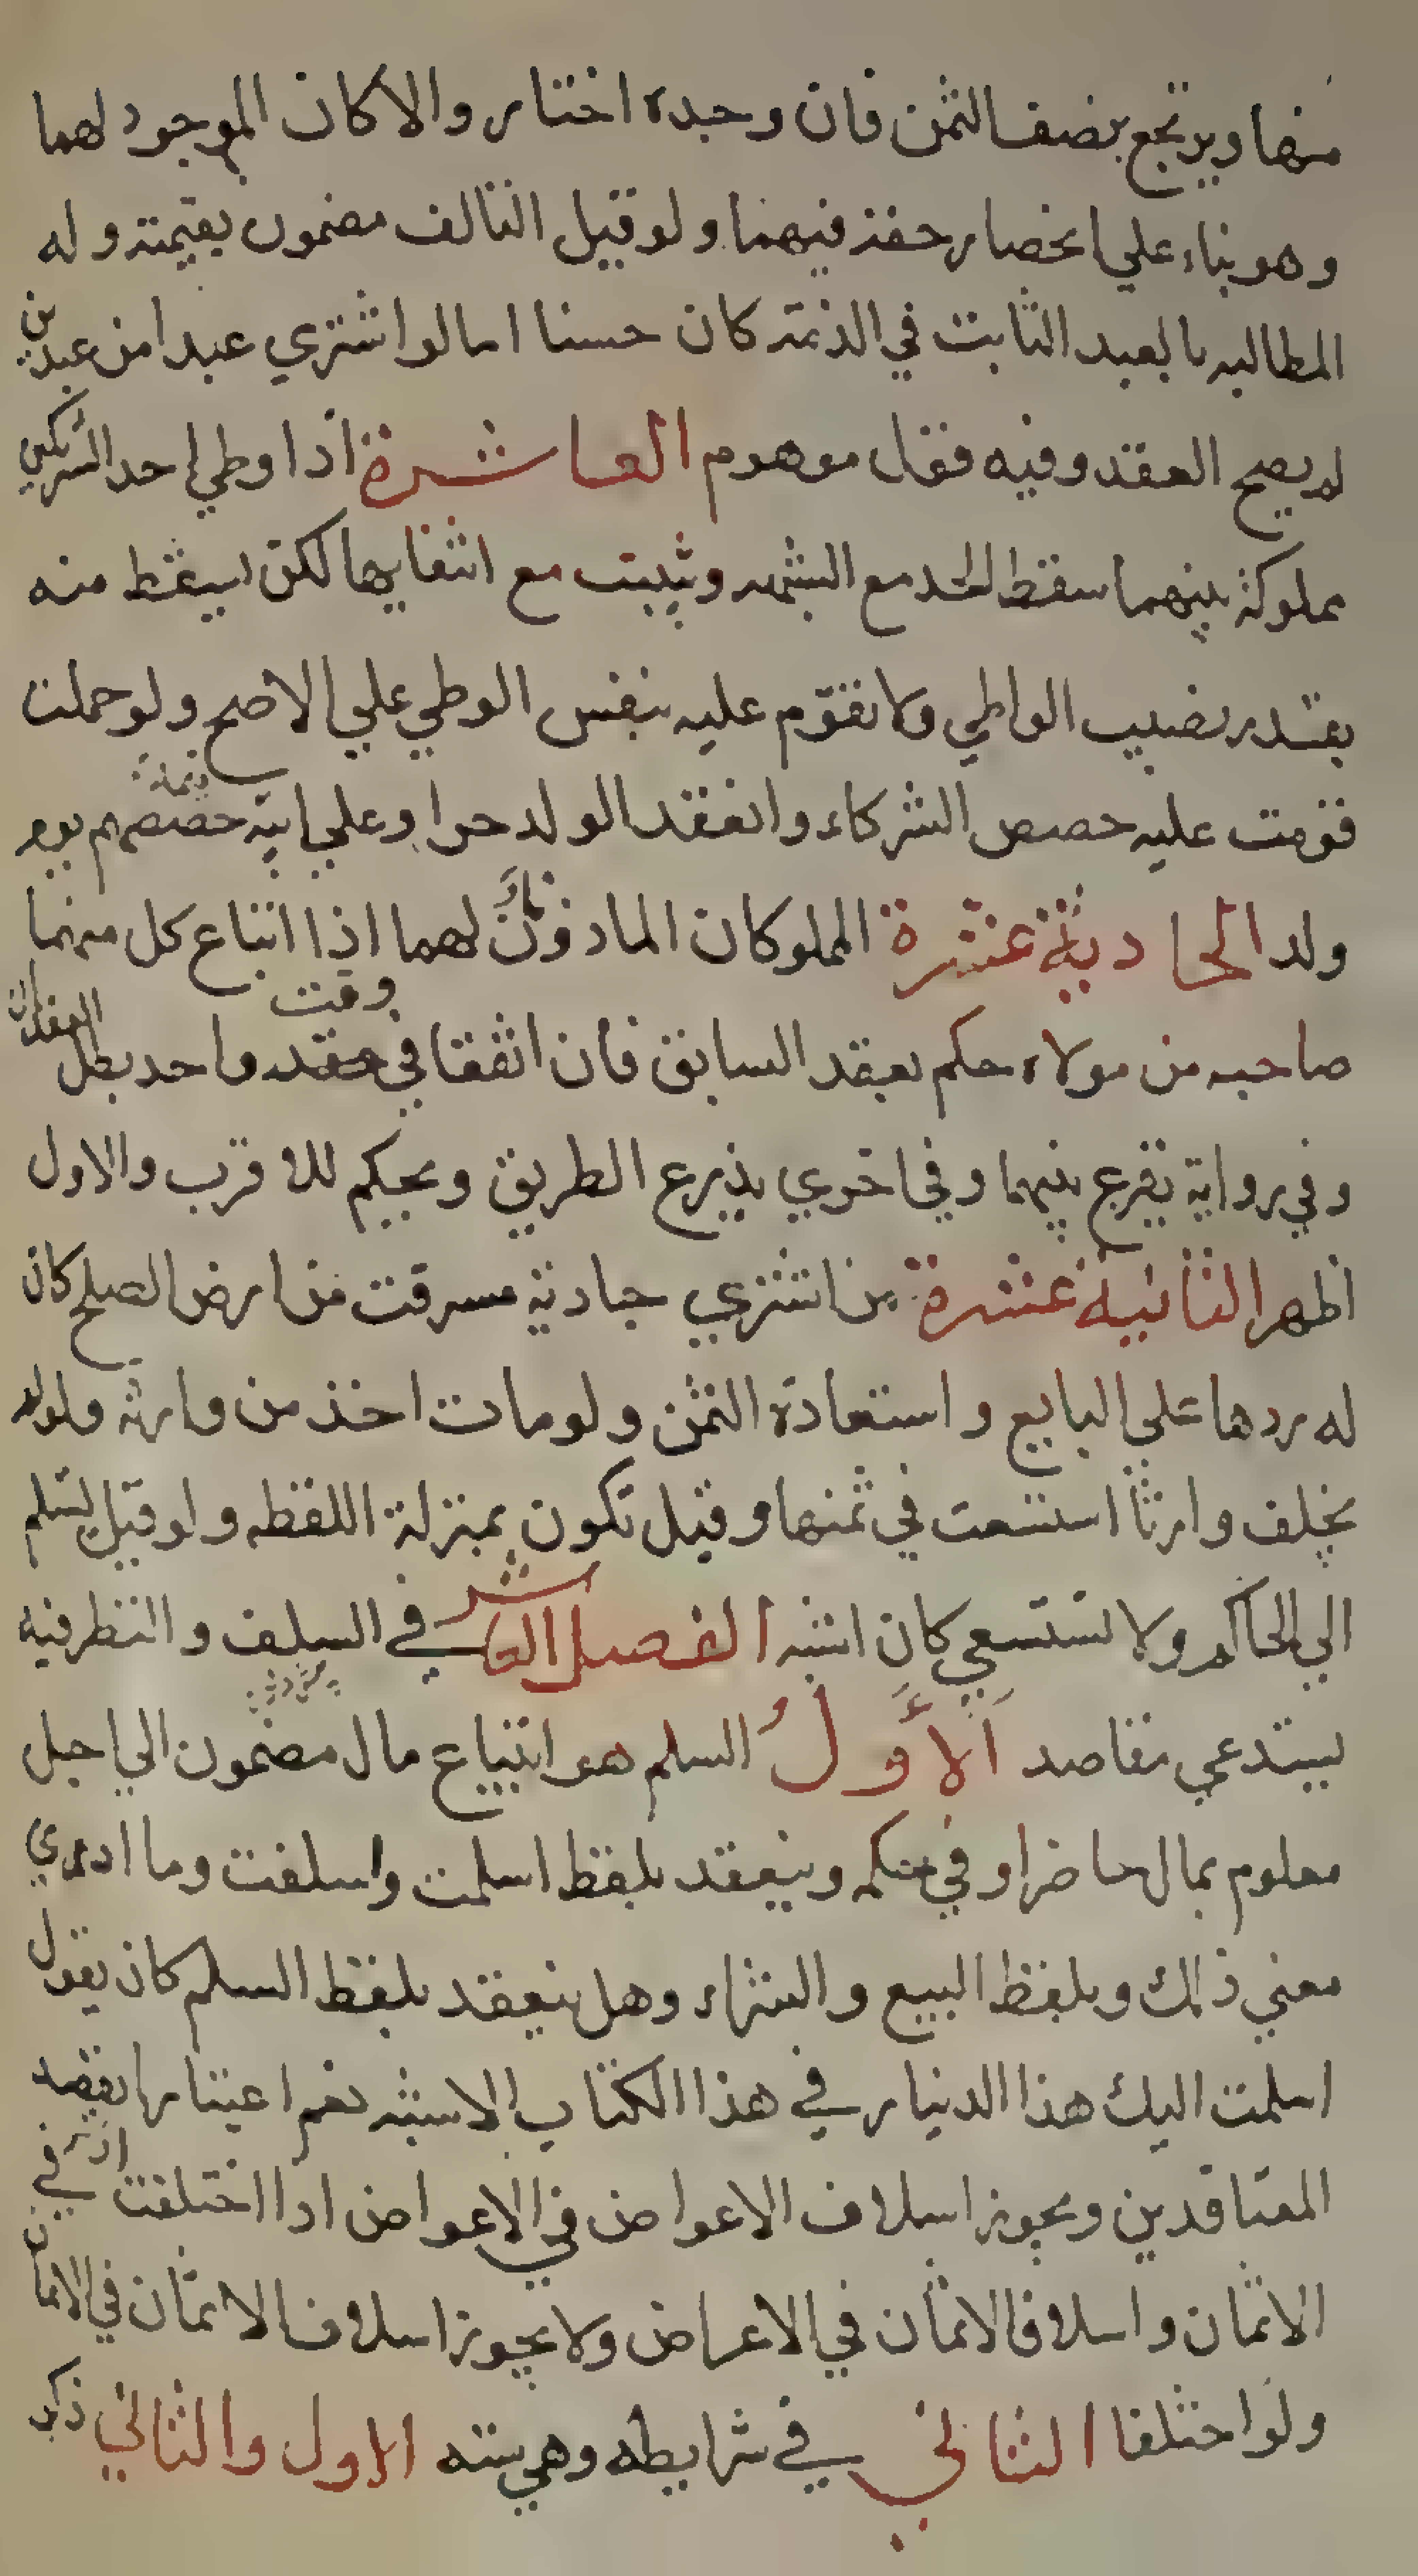 منها ويرتجع بنصف الثمن فان وجده اختار والا كان الموجود لهما
وهو بناء علي انحصار حقه فيهما ولو قيل التالف مضمون بقيمته وله
المطالبه بالعبد الثابت في الذمة كان حسنا اما لو اشتري عبدا من عبدين
لم يصح العقد وفيه فقل موهوم العاشرة اذا وطي احد الشريكين
مملوكة بينهما سقط الحد مع الشبهه ويثبت مع انتفايها لكن يسقط منه
بقدر نصيب الواطي ولا تقوم عليه بنفس الوطي علي الاصح ولو حملت
قومت عليه حصص الشركاء وانعقد الولد حرا وعلي ابيه قيمة حصصهم يوم
ولد الحادية عشرة المملوكان الماذون لهما اذا ابتاع كل منهما
صاحبه من مولاه حكم بعقد السابق فان اتفقا في وقت واحد بطل العقدان
وفي رواية يقرع بينهما وفي اخري يذرع الطريق ويحكم للاقرب والاول
اظهر الثانية عشرة من اشتري جارية سرقت من ارض الصلح كان
له ردها علي البايع واستعادة الثمن ولو مات اخذ من وارثه ولو لم
يخلف وارثا استسعت في ثمنها وقيل تكون بمنزلة اللقطه ولو قيل تسلم
الي الحاكم ولا تستسعي كان اشبه الفصل العاشر في السلف والنظر فيه
يستدعي مقاصد الأول السلم هو ابتياع مال مضمون الي اجل
معلوم بمال حاضر او في حكمه وينعقد بلفظ اسلمت واسلفت وما ادي
معني ذلك وبلفظ البيع والشراء وهل ينعقد بلفظ السلم كان يقول
اسلمت اليك هذا الدينار في هذا الكتاب الاشبه نعم اعتبارا بقصد
المتعاقدين ويجوز اسلاف الاعواض في الاعواض اذا اختلفت وفي
الاثمان واسلاف الاثمان في الاعراض ولا يجوز اسلاف الاثمان في الاثمان
ولو اختلفا الثاني في شرايطه وهي سته الاول والثاني ذكر